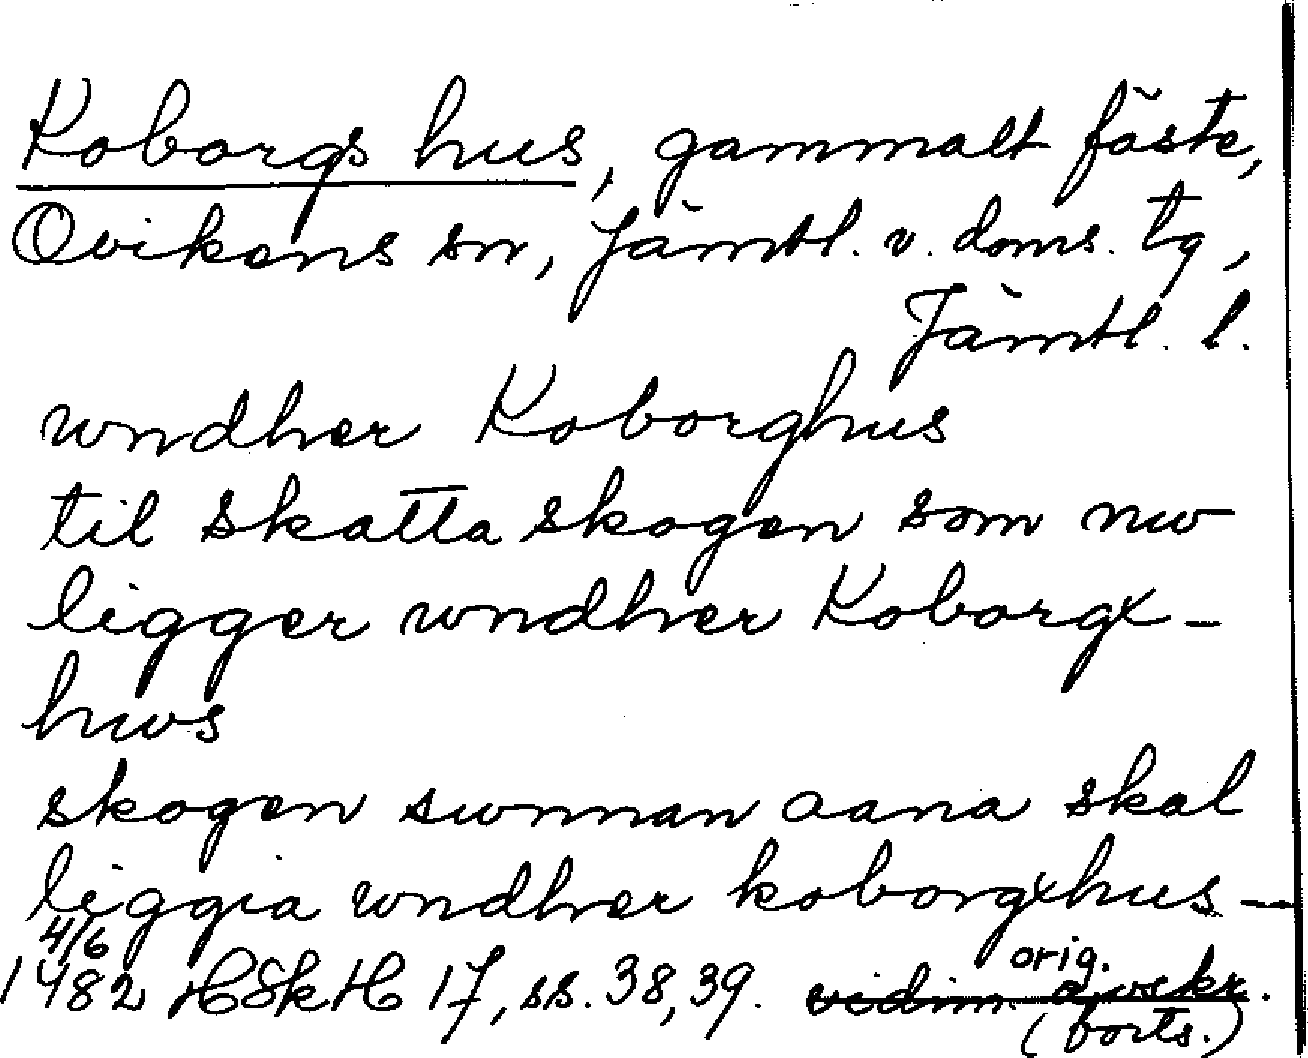 Koborgs hus, gammalt fäste,
Ovikens sn, Jämtl. v. doms. tg,
Jämtl. l.
wndher Koborghus
til skatta skogen som nw
ligger wndher Koborgx-
hws
skogen swnnan aana skal
liggia wndher koborgxhus —
4/6
1482 HSkH 17, ss. 38, 39. vidim. avskr. orig.
(forts.)